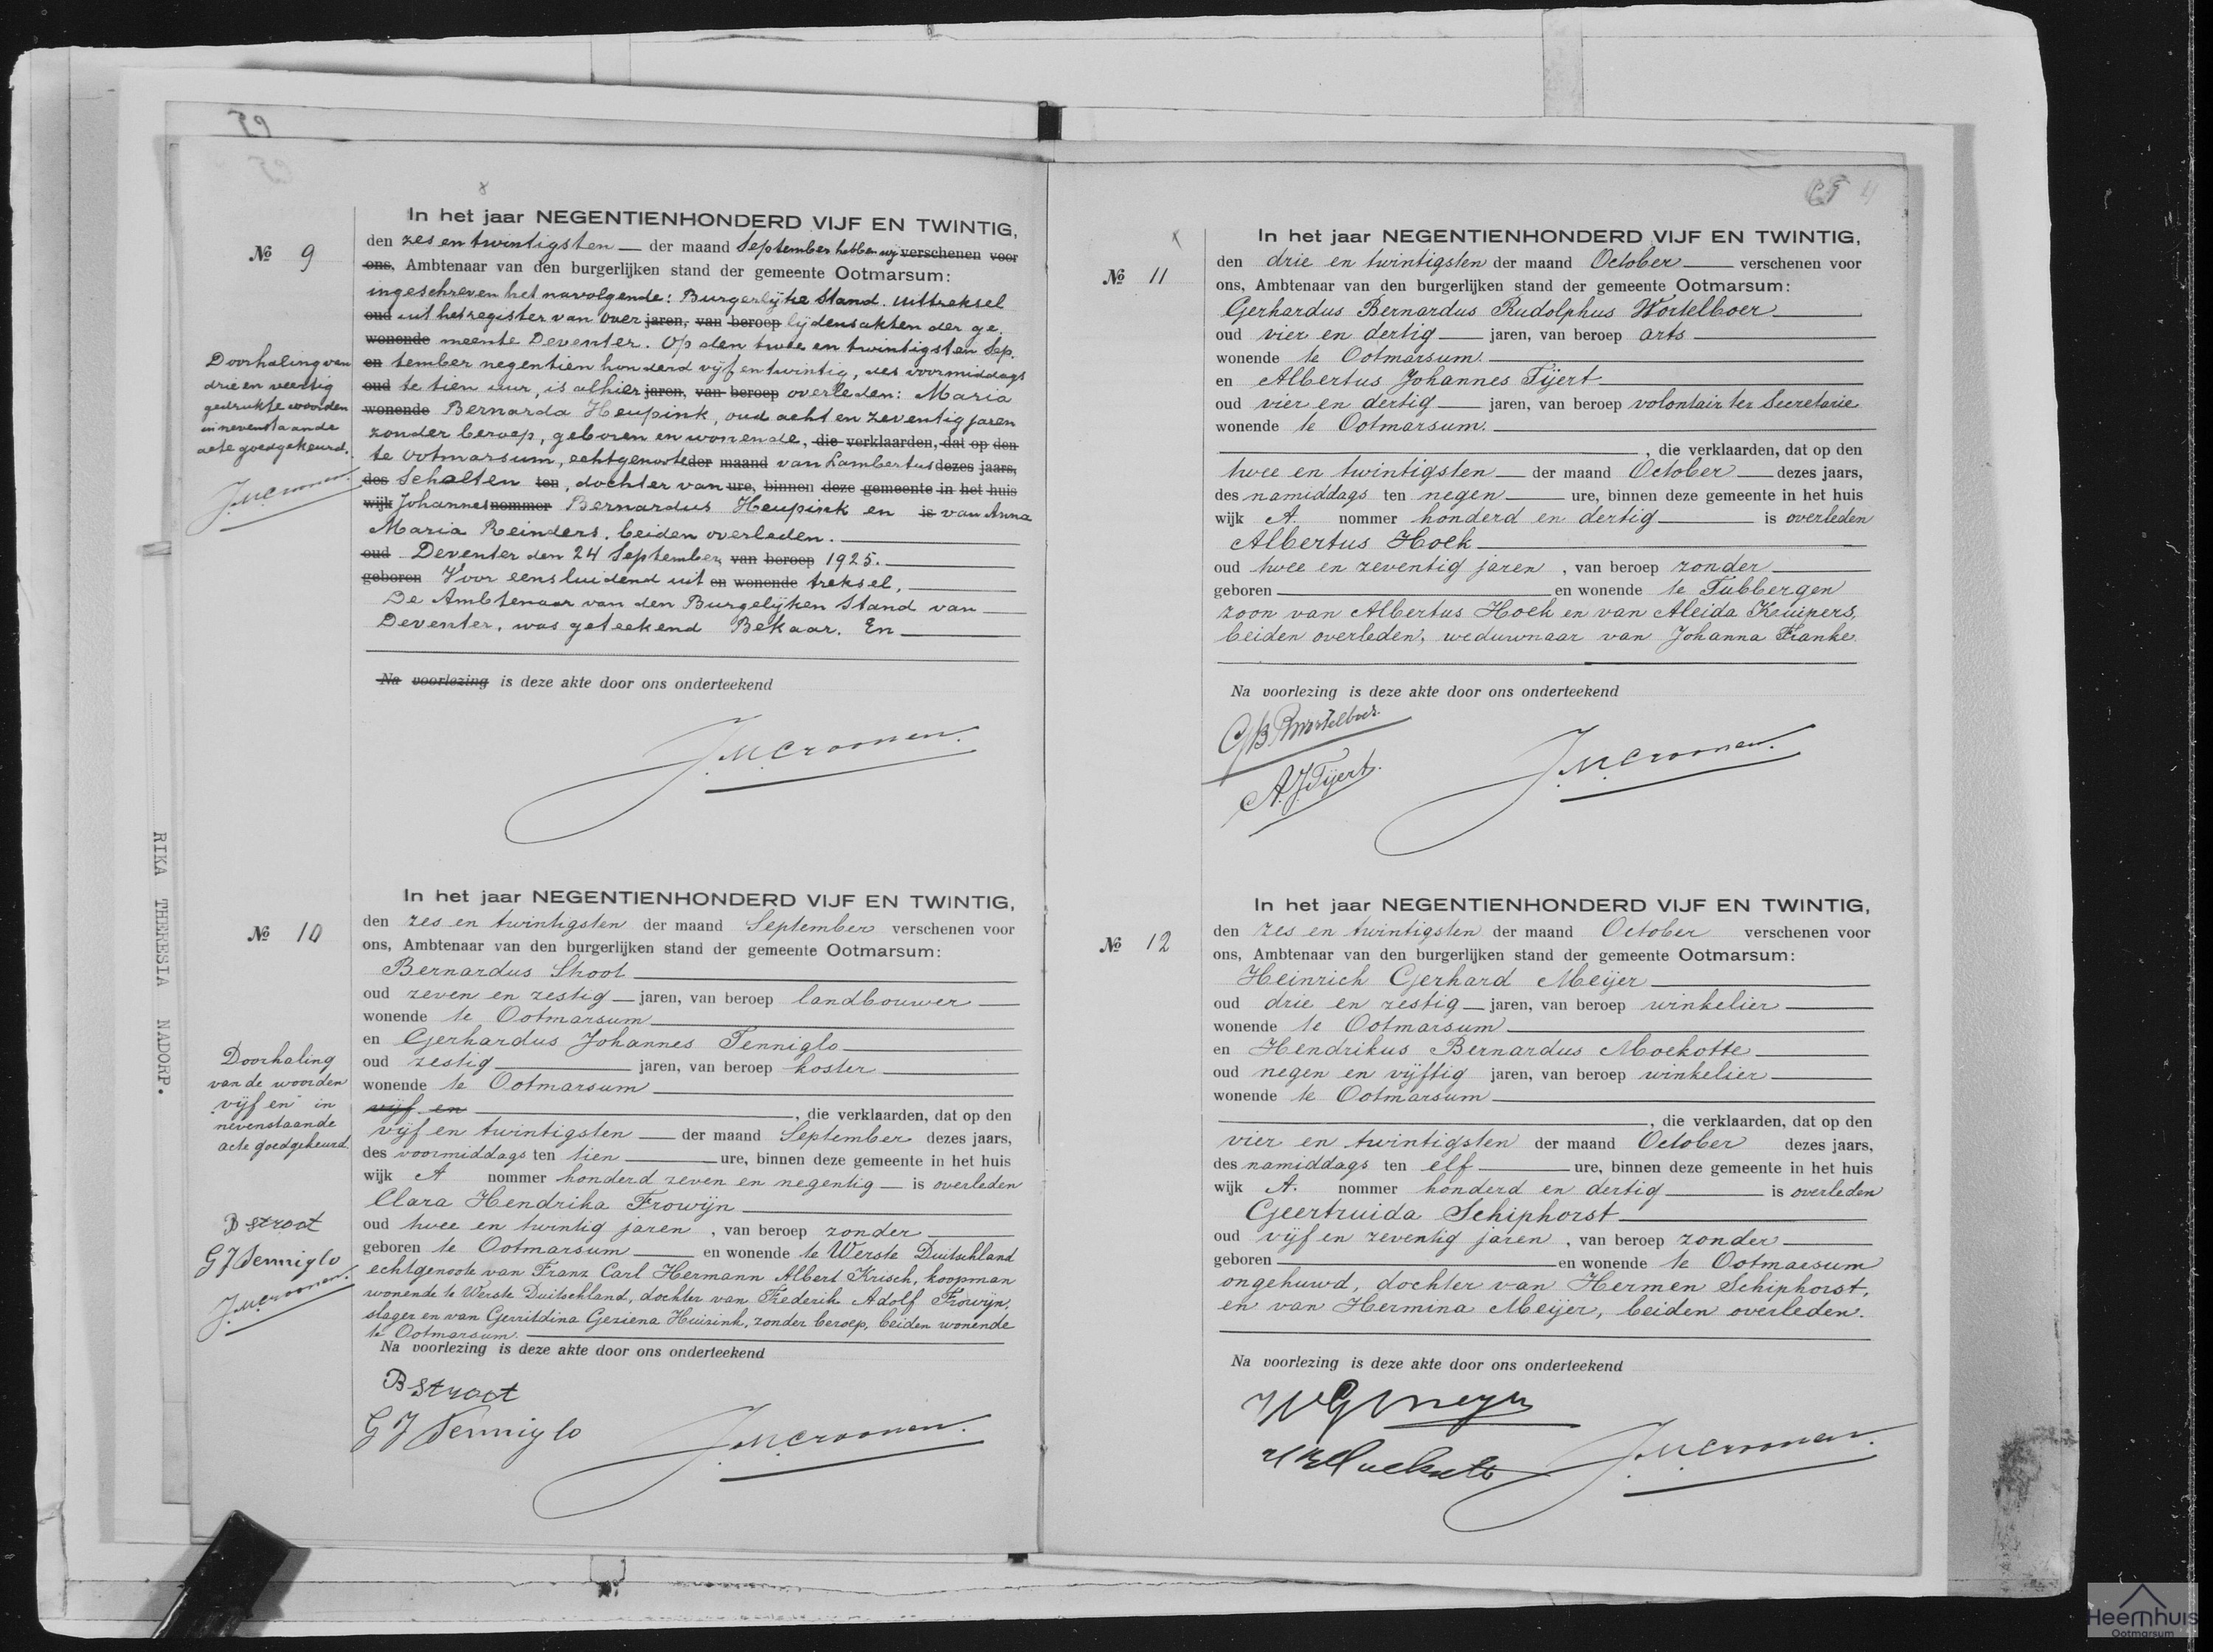 59
In het jaar NEGENTIENHONDERD VIJF EN TWINTIG,
№ 9
den zes en twintigsten der maand September hebben wij verschenen voor
ons, Ambtenaar van den burgerlijken stand der gemeente Ootmarsum:
ingeschreven het navolgende: Burgerlijke Stand. Uittreksel
oud uit het register van over jaren, van beroep lijdensakten der ge.
wonende meente Deventer. Op den twee en twintigsten Sep.
en tember negentien honderd vijf en twintig, des voormiddags
oud te tien uur, is alhier jaren, van beroep overleden: Maria
wonende Bernarda Heupink, oud acht en zeventig jaren
zonder beroep, geboren en wonende, die verklaarden, dat op den
te Ootmarsum, echtgenoote der maand van Lambertus dezes jaars,
des Scholten ten, dochter van ure, binnen deze gemeente in het huis
wijk Johannes nommer Bernardus Heupink en is van Anna
Maria Reinders, beiden overleden.
oud Deventer den 24 September van beroep 1925.
geboren Voor eensluidend uit en wonende treksel,
De Ambtenaar van den Burgelijken Stand van
Deventer, was geteekend Bekaar. En
Na voorlezing is deze akte door ons onderteekend
J.M.Croonen.
Doorhaling van
drie en veertig
gedrukte woorden
in nevenstaande
acte goedgekeurd.
J.M.Croonen.
In het jaar NEGENTIENHONDERD VIJF EN TWINTIG,
№ 10
den zes en twintigsten der maand September verschenen voor
ons, Ambtenaar van den burgerlijken stand der gemeente Ootmarsum:
Bernardus Stroot
oud zeven en zestig jaren, van beroep landbouwer
wonende te Ootmarsum
en Gerhardus Johannes Tenniglo
oud zestig jaren, van beroep koster
wonende te Ootmarsum
vijf en , die verklaarden, dat op den
vijf en twintigsten der maand September dezes jaars,
des voormiddags ten tien ure, binnen deze gemeente in het huis
wijk A nommer honderd zeven en negentig is overleden
Clara Hendrika Frowijn
oud twee en twintig jaren, van beroep zonder
geboren te Ootmarsum en wonende te Werste Duitschland
echtgenoote van Franz Carl Hermann Albert Krisch, koopman
wonende te Werste Duitschland, dochter van Frederik Adolf Frowijn,
slager en van Gerritdina Geziena Huisink, zonder beroep, beiden wonende
te Ootmarsum.
Na voorlezing is deze akte door ons onderteekend
B Stroot
G J Tenniglo
J.M.Croonen.
Doorhaling
van de woorden
"vijf en" in
nevenstaande
acte goedgekeurd
B Stroot
G J Tenniglo
J.M.Croonen.
RIKA THERESIA NADORP.
4
In het jaar NEGENTIENHONDERD VIJF EN TWINTIG,
№ 11
den drie en twintigsten der maand October verschenen voor
ons, Ambtenaar van den burgerlijken stand der gemeente Ootmarsum:
Gerhardus Bernardus Rudolphus Wortelboer
oud vier en dertig jaren, van beroep arts
wonende te Ootmarsum.
en Albertus Johannes Tijert
oud vier en dertig jaren, van beroep volontair ter Secretarie
wonende te Ootmarsum.
, die verklaarden, dat op den
twee en twintigsten der maand October dezes jaars,
des namiddags ten negen ure, binnen deze gemeente in het huis
wijk A. nommer honderd en dertig is overleden
Albertus Hoek
oud twee en zeventig jaren, van beroep zonder
geboren en wonende te Tubbergen
zoon van Albertus Hoek en van Aleida Kruipers,
beiden overleden, weduwnaar van Johanna Franke.
Na voorlezing is deze akte door ons onderteekend
GBRWortelboer.
A.J.Tijert.
J.M.Croonen.
In het jaar NEGENTIENHONDERD VIJF EN TWINTIG,
№ 12
den zes en twintigsten der maand October verschenen voor
ons, Ambtenaar van den burgerlijken stand der gemeente Ootmarsum:
Heinrich Gerhard Meijer
oud drie en zestig jaren, van beroep winkelier
wonende te Ootmarsum
en Hendrikus Bernardus Moekotte
oud negen en vijftig jaren, van beroep winkelier
wonende te Ootmarsum
, die verklaarden, dat op den
vier en twintigsten der maand October dezes jaars,
des namiddags ten elf ure, binnen deze gemeente in het huis
wijk A. nommer honderd en dertig is overleden
Geertruida Schiphorst
oud vijf en zeventig jaren, van beroep zonder
geboren en wonende te Ootmarsum
ongehuwd, dochter van Hermen Schiphorst,
en van Hermina Meijer, beiden overleden.
Na voorlezing is deze akte door ons onderteekend
J.M.Croonen.
Heemhuis
Ootmarsum